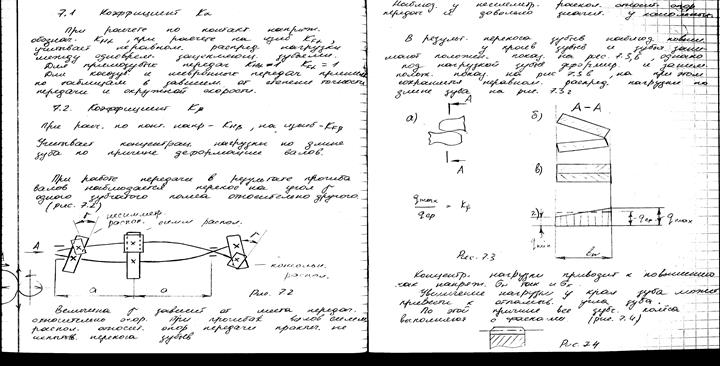 7.1 Коэффициент Kα
При расчете по контакт. напряж.
обознач. KHα, при расчете на изгиб KFα,
учитывает неравном. распред. нагрузки
между одноврем. зацепляющ. зубьями.
Для прямозубых передач KHα=1 KFα=1
Для косозуб и шевронных передач
по таблицам в зависим. от степени точности
передачи и окружной скорости.
7.2. Коэффициент Kβ
При расч. по конт. напр - KHβ, на изгиб - KFβ
Учитывает концентрац. нагрузки по длине
зуба по причине деформации валов.
При работе передачи в результате прогиба
валов наблюдается перекос на угол γ
одного зубчатого колеса относительно другого.
(рис. 7.2)
несиммет.
распол. симм распол.
γ
A
консольн.
распол.
a a
Рис. 7.2
Величина γ зависит от места передач.
относительно опор. При прогибах валов симмет.
распол. относит. опор передачи практ. не
испытыв. перекоса зубьев
Наблюд. у несиметр. распол. относит. опор
передач и довольно значит. у консольных
В результ. перекоса зубьев наблюд
у краев зубьев и зубья
положен. показ. на рис. 7.3,б, однако
под нагрузкой зубья деформир. и заним.
полож. показ. на рис 7.3 в, но при этом
сохраняется неравном. распред. нагрузки по
длине зуба на рис. 7.3 г
a) A A
б) A-A
в)
г)
qmax / qср = Kβ
qср qmax
qmin
bw
Рис. 7.3
Концентр. нагрузки приводит к повышению
как напряж. σн так и σF.
Увеличение нагрузки у края зуба может
привести к угла зуба.
По этой причине все зубч. колеса
выполняются с фасками (рис. 7.4)
Рис. 7.4